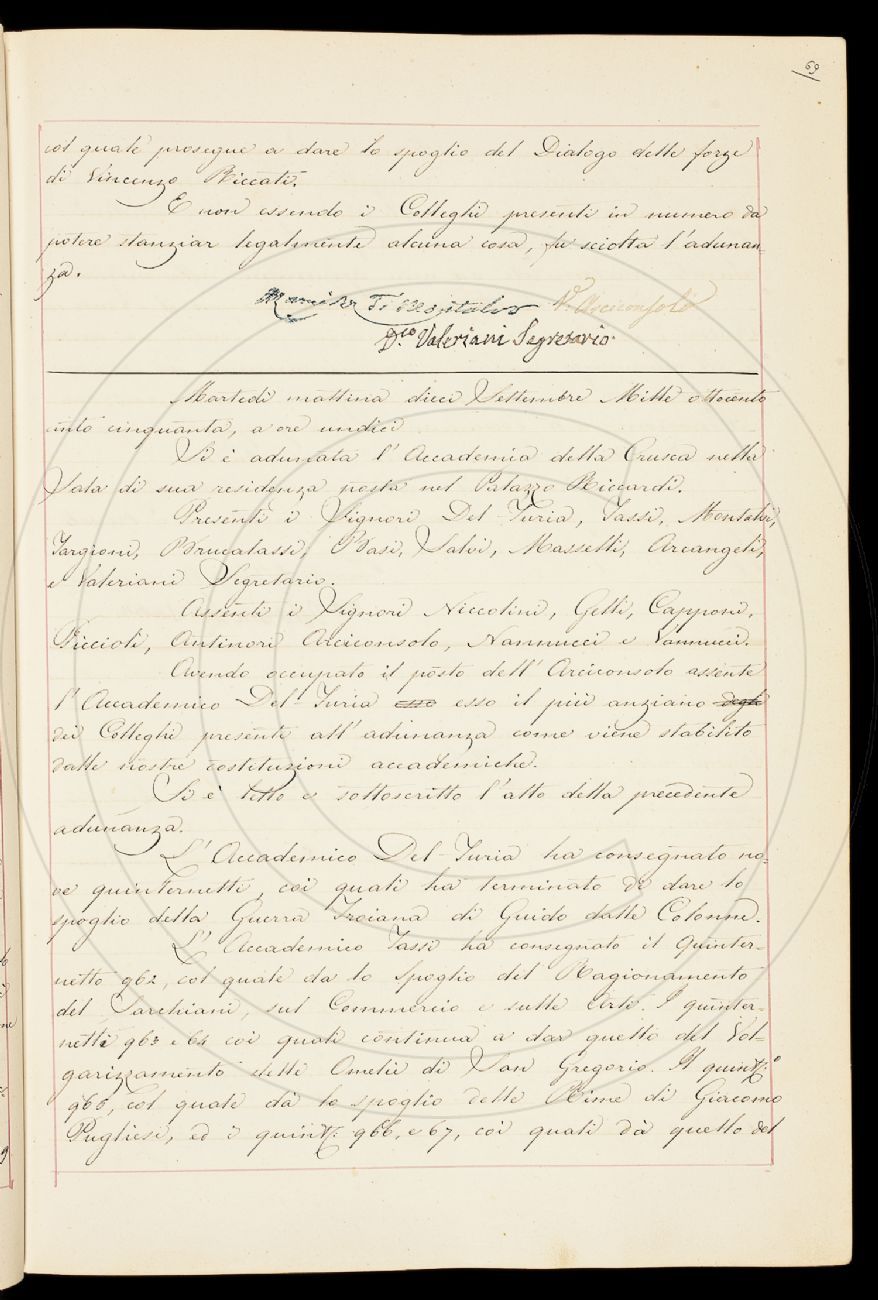 69
col quale prosegue a dare lo spoglio del Dialogo delle forze
di Vincenzo Riccati.
E non essendo i Colleghi presenti in numero da
potere stanziar legalmente alcuna cosa, fu sciolta l'adunan-
za.
V.º Arciconsolo
D.co Valeriani Segretario.
Martedì mattina dieci Settembre Mille ottocento
cinquanta, a ore undici
Si è adunata l'Accademia della Crusca nella
Sala di sua residenza posta nel Palazzo Riccardi.
Presenti i Signori Del-Furia, Tassi, Montalvi,
Targioni, Brucalassi, Basi, Salvi, Masselli, Arcangeli,
e Valeriani Segretario.
Assenti i Signori Niccolini, Gelli, Capponi,
Piccioli, Antinori Arciconsolo, Nannucci e Vannucci.
Avendo occupato il posto dell'Arciconsolo assente
l'Accademico Del-Furia esso il più anziano degli
dei Colleghi presenti all'adunanza come viene stabilito
dalle nostre costituzioni accademiche.
Si è letto e sottoscritto l'atto della precedente
adunanza.
L'Accademico Del-Furia ha consegnato no-
ve quinternetti, coi quali ha terminato di dare lo
spoglio della Guerra Troiana di Guido dalle Colonne.
L'Accademico Tassi ha consegnato il Quinter-
netto 962, col quale da lo Spoglio del Ragionamento
del Sarchiani, sul Commercio e sulle Arti. I quinter-
netti 963 e 64 coi quali continua a dar quello del Vol-
garizzamento delle Omelie di San Gregorio. Il quint.º
966, col quale dà lo spoglio delle Rime di Giacomo
Pugliesi, ed i quint.i 966, e 67, coi quali dà quello del